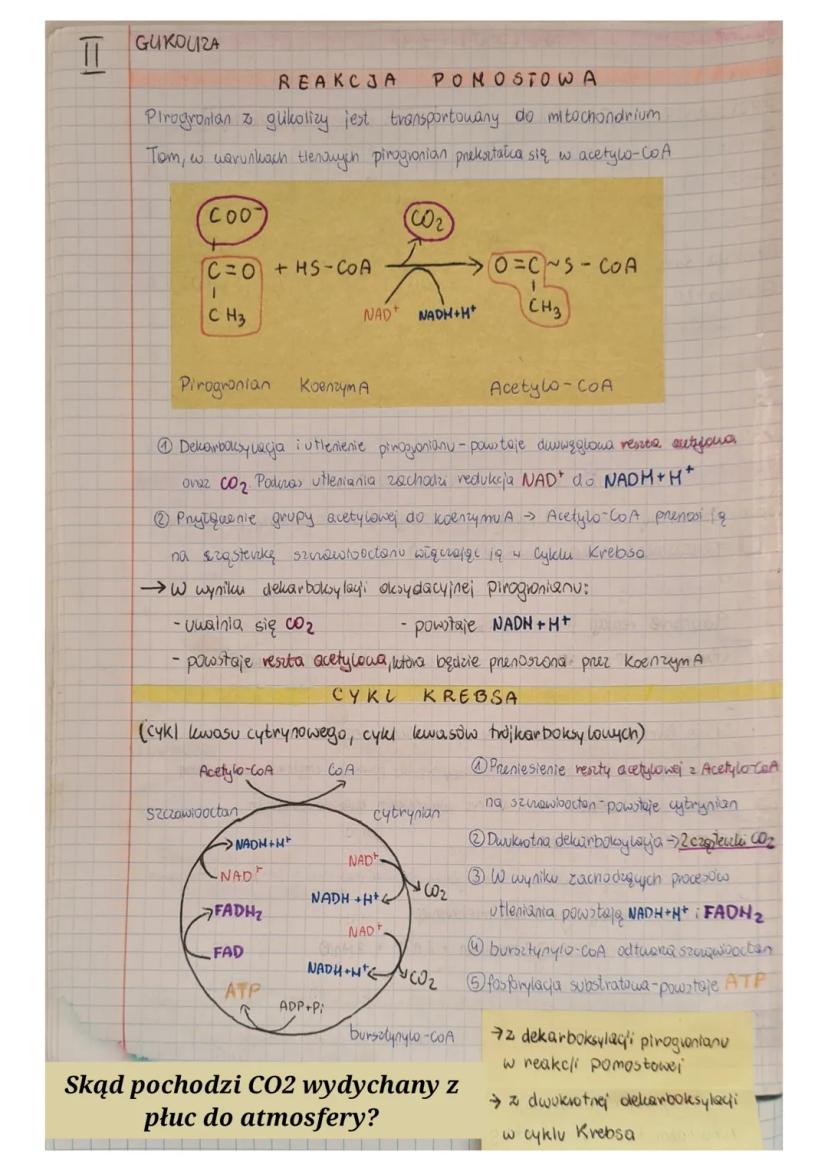 II
GLIKOLIZA
REAKCJA POMOSTOWA
Pirogronian z glikolizy jest transportowany do mitochondrium
Tam, w warunkach tlenowych pirogronian przekształca się w acetylo-CoA
COO⁻
CO₂
C=O + HS-CoA
O=C~S-CoA
CH₃
NAD⁺
NADH+H⁺
CH₃
Pirogronian
Koenzym A
Acetylo-CoA
① Dekarboksylacja i utlenienie pirogronianu - powstaje dwuwęglowa reszta acetylowa
oraz CO₂. Podczas utleniania zachodzi redukcja NAD⁺ do NADH+H⁺
② Przyłączenie grupy acetylowej do koenzymu A → Acetylo-CoA przenosi ją
na cząsteczkę szczawiooctanu włączając ją w Cyklu Krebsa
→ W wyniku dekarboksylacji oksydacyjnej pirogronianu:
- uwalnia się CO₂ - powstaje NADH+H⁺
- powstaje reszta acetylowa, która będzie przenoszona przez Koenzym A
CYKL KREBSA
(cykl kwasu cytrynowego, cykl kwasów trójkarboksylowych)
Acetylo-CoA
CoA
szczawiooctan
cytrynian
NADH+H⁺
NAD⁺
FADH₂
FAD
ATP
ADP+Pi
NAD⁺
NADH+H⁺
CO₂
NAD⁺
NADH+H⁺
CO₂
bursztynylo-CoA
① Przeniesienie reszty acetylowej z Acetylo-CoA
na szczawiooctan - powstaje cytrynian
② Dwukrotna dekarboksylacja → 2 cząsteczki CO₂
③ W wyniku zachodzących procesów
utleniania powstają NADH+H⁺ i FADH₂
④ bursztynylo-CoA odtwarza szczawiooctan
⑤ fosforylacja substratowa - powstaje ATP
Skąd pochodzi CO2 wydychany z
płuc do atmosfery?
→ z dekarboksylacji pirogronianu
w reakcji pomostowej
→ z dwukrotnej dekarboksylacji
w cyklu Krebsa